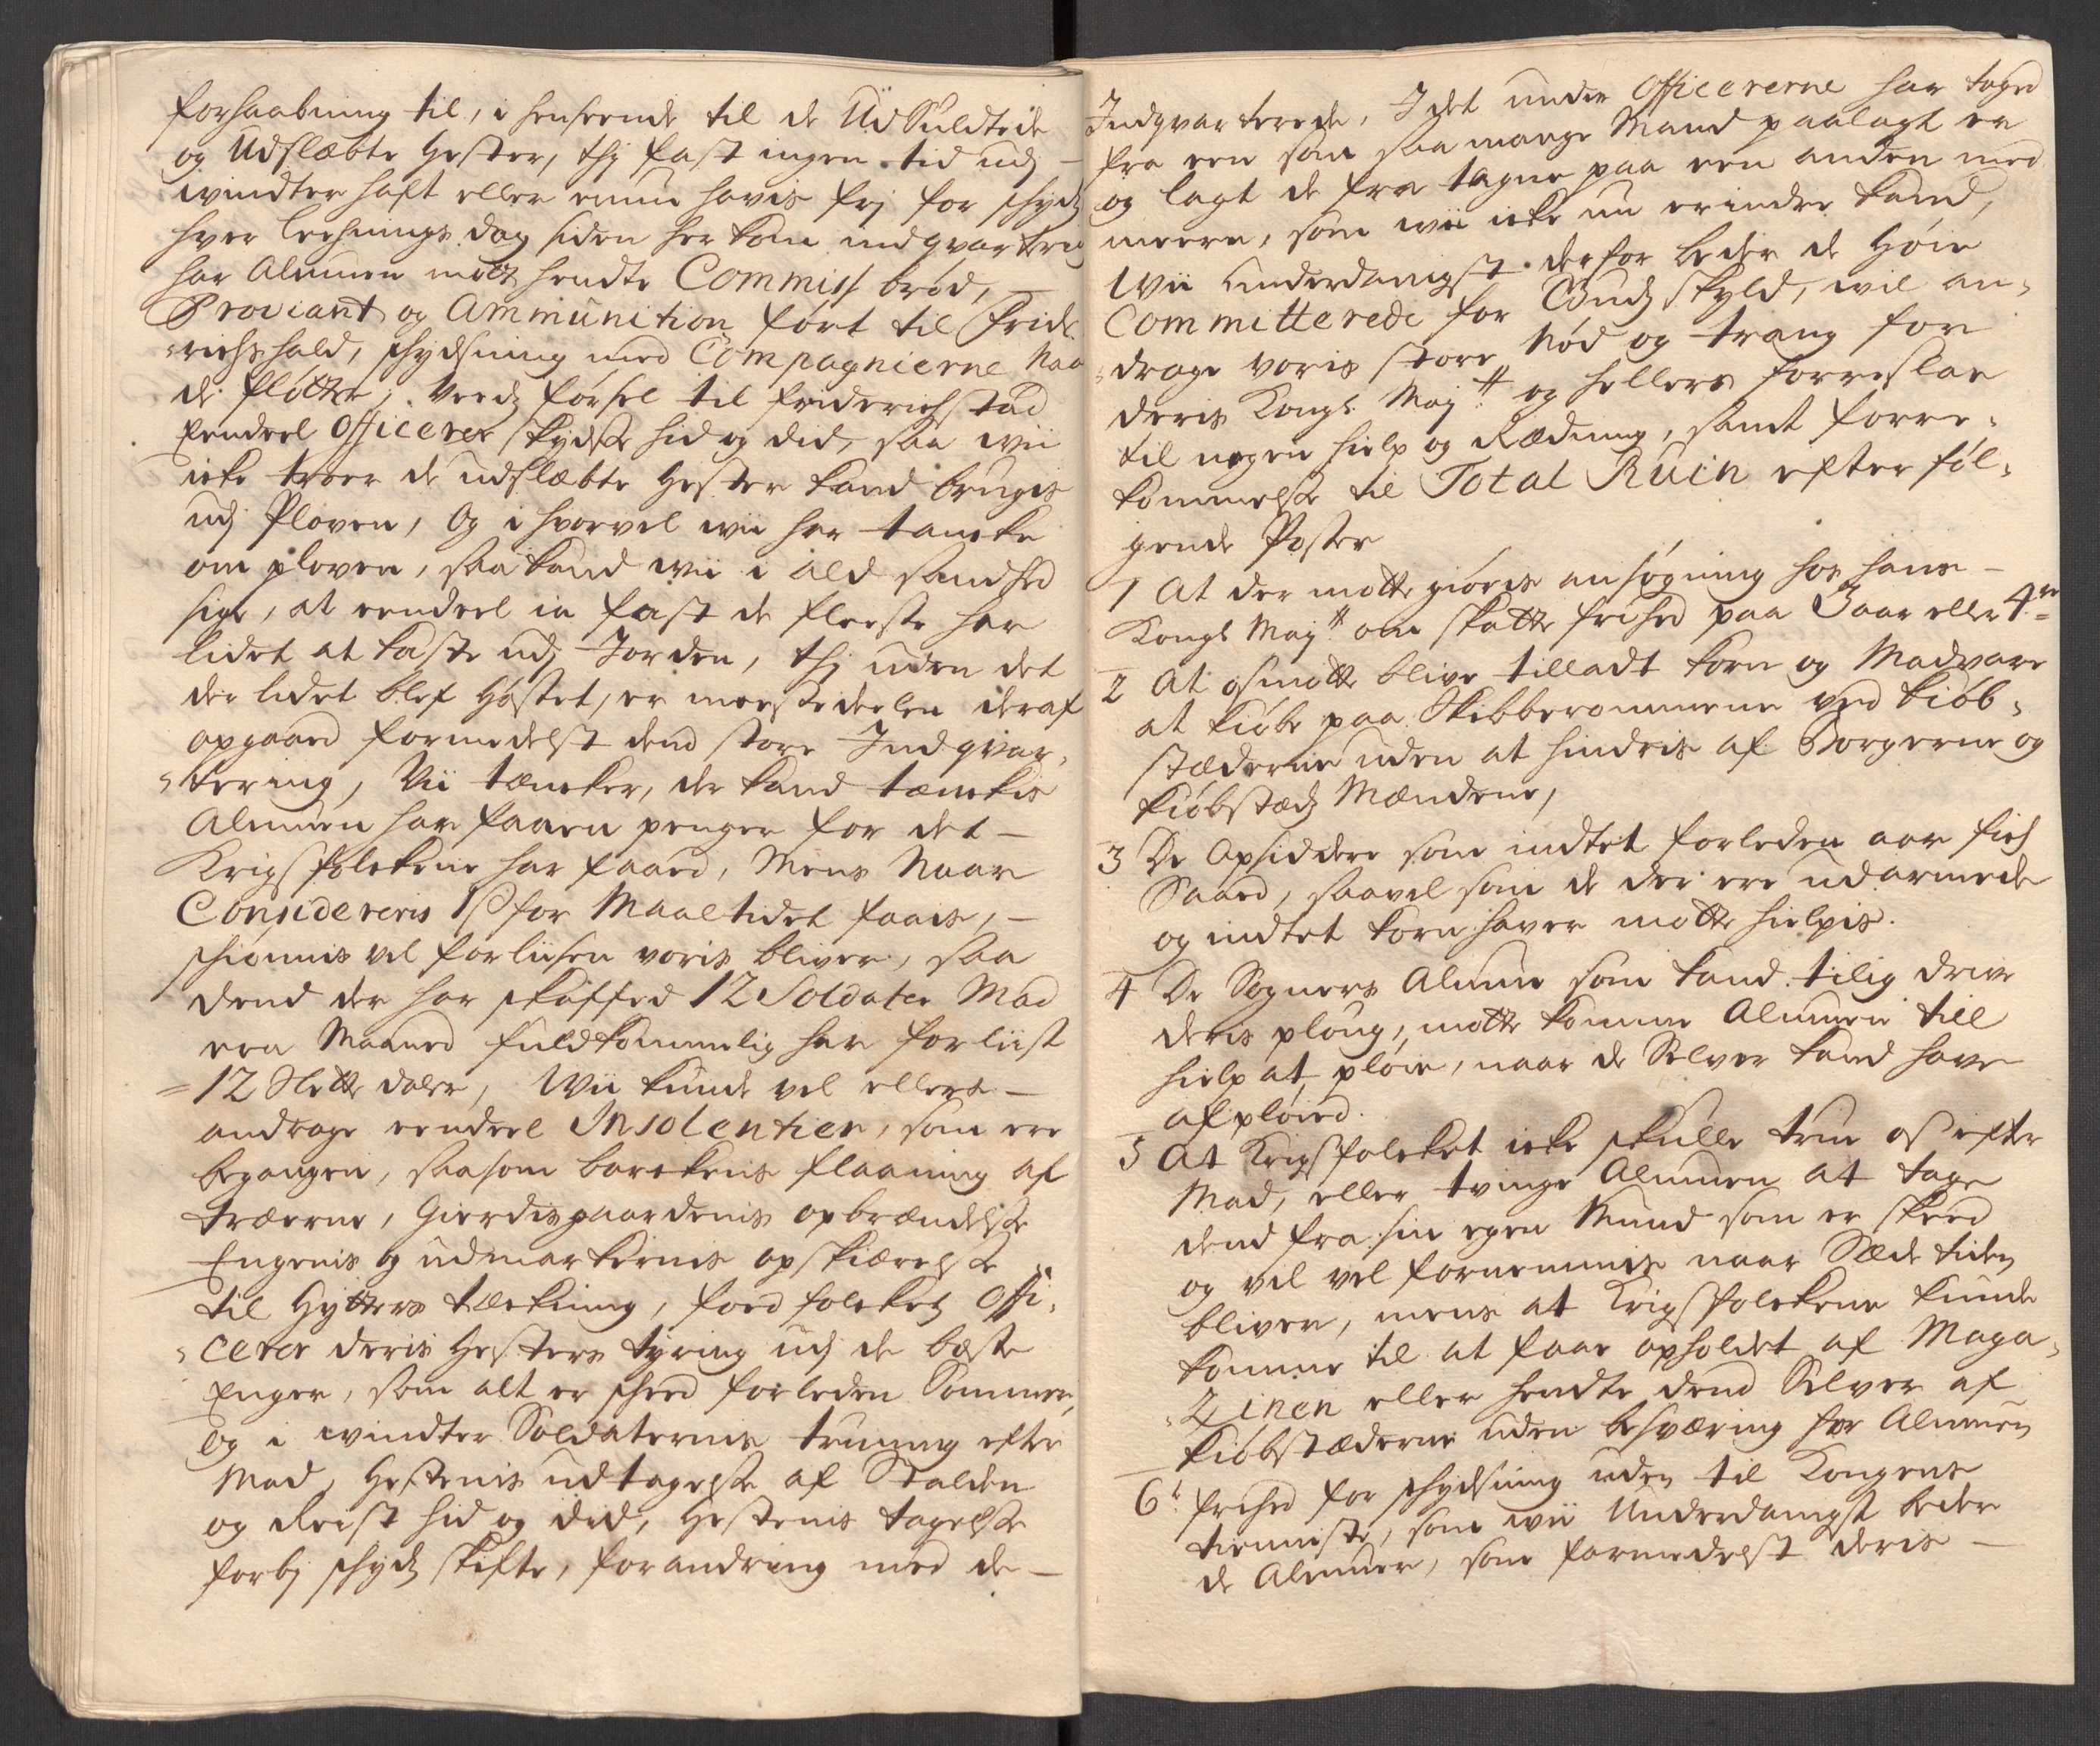 forhaabning til, i henseende til de Udsuldtede
og Udslæbte Hester, thj fast ingen tid udj
windter haft eller ennu hafvis frj for schyds
hver leehnings dag siden her kom indqvartering
har Almuen mott hendte Commiss brød,
Proviant og Ammunition ført til Fride
richshald, schydsning med Compagnierne Naar
de fløtte, Veeds førsel til Friderichstad
Eendeel Officerer skydse hid og did, saa wii
icke troer de udslæbte Hester kand brugis
udj Ploven, Og i hvorvel wii her tænke
om ploven, saa kand wii i ald sandhed
sige, at eendeel ia fast de fleeste har
lidet at kaste udj Jorden, thj uden det
der lidet blef Høstet, er meestedeelen deraf
opgaaed formedelst dend store Indqvar
tering, Vii tæncker, der kand tænckis
Almuen har faaen penger for det
Krigsfolckene har faaed, Mens Naar
Considereris 1 ß for Maaltidet faais,
schiønnis vel forliisen voris bliver, saa
dend der har skaffed 12 Soldater Mad
een Maaned fuldkommelig har forliist
12 Slette daler, Wii kunde vel ellers
andrage eendeel Insolentier, som ere
begangen, saasom barckens flaaning af
træerne, Gierdisgaardenis opbrændelse
Engenis og udmarkernis opskiærelse
til Hytters tæckning, foed folckets Offi
cerer deris Hesters tyring udj de beste
Enger, som alt er scheed forleden Sommer,
og i windter Soldaternis truning efter
Mad, Hestenis udtagelse af Stalden
og Reist hid og did, Hestenis tagelse
forbj schyds skifte, forandring med de
Indqvarterede, I det under Officererne har taged
fra een som saa mange Mand paalagt er
og lagt de fra tagne paa een anden med
meere, som wii icke nu erindre kand,
Wii underdanigst derfor beder de Høie
Committerede for Guds skyld, wil an
drage voris store Nød og trang for
deris Kongl. Maytt og hellers forreslae
til nogen hielp og Redning, samt forre
kommelse til Total Ruin efterføl
gende Poster
1 At der motte giøris ansøgning hos hans
Kongl Maytt om skatte frihed paa 3 aar eller 4re
2 At os motte blive tilladt Korn og Madvare
at kiøbe paa Skibberommene ved kiøb
stæderne uden at hindris af Borgerne og
kiøbstæds Mændene,
3 De Opsiddere som indtet forleden aar fich
Saaed, saavel som de der ere udarmede
og indtet korn haver motte hielpis.
4 De Sogners Almue som kand tilig drive
deris ploug, motte komme Almuen till
hielp at pløie, naar de Selver kand have
afpløied.
5 At Krigsfolcket icke skulle true os efter
Mad, eller tvinge Almuen at tage
dend fra sin egen Mund som er skeed
og vel vel fornemmis naar Sæde tiden
bliver, mens at Krigsfolckene kunde
komme til at faae opholdet af Maga
Zinen eller hendte dend Selver af
kiøbstæderne uden besværing for Almuen
6t frihed for schydsning uden til Kongens
tienniste, som wii Underdanigst beder
de Almuer, som formedelst deris